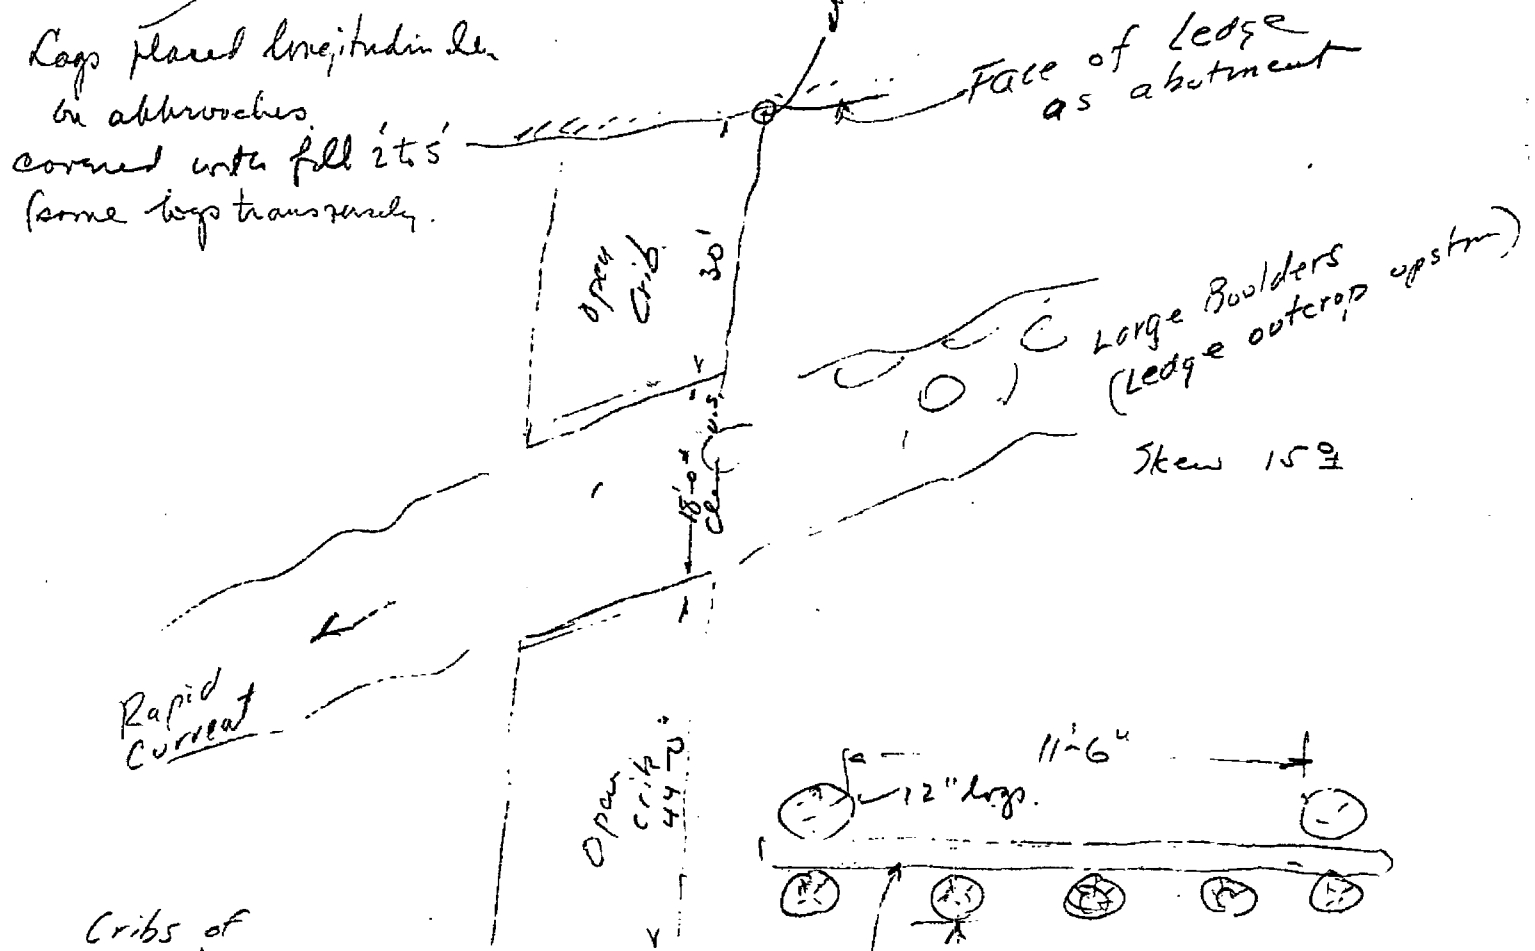 Logs placed longitudin
on approaches
covered with fill 2' to 5'
(some logs transversely.
Face of Ledge
as abutment
Open
Crib
30'
Large Boulders
(Ledge outcrop upstm)
18'-0"
Clear
Skew 15°
Rapid
Current
Open
crib
11'-6"
12" logs.
Cribs of